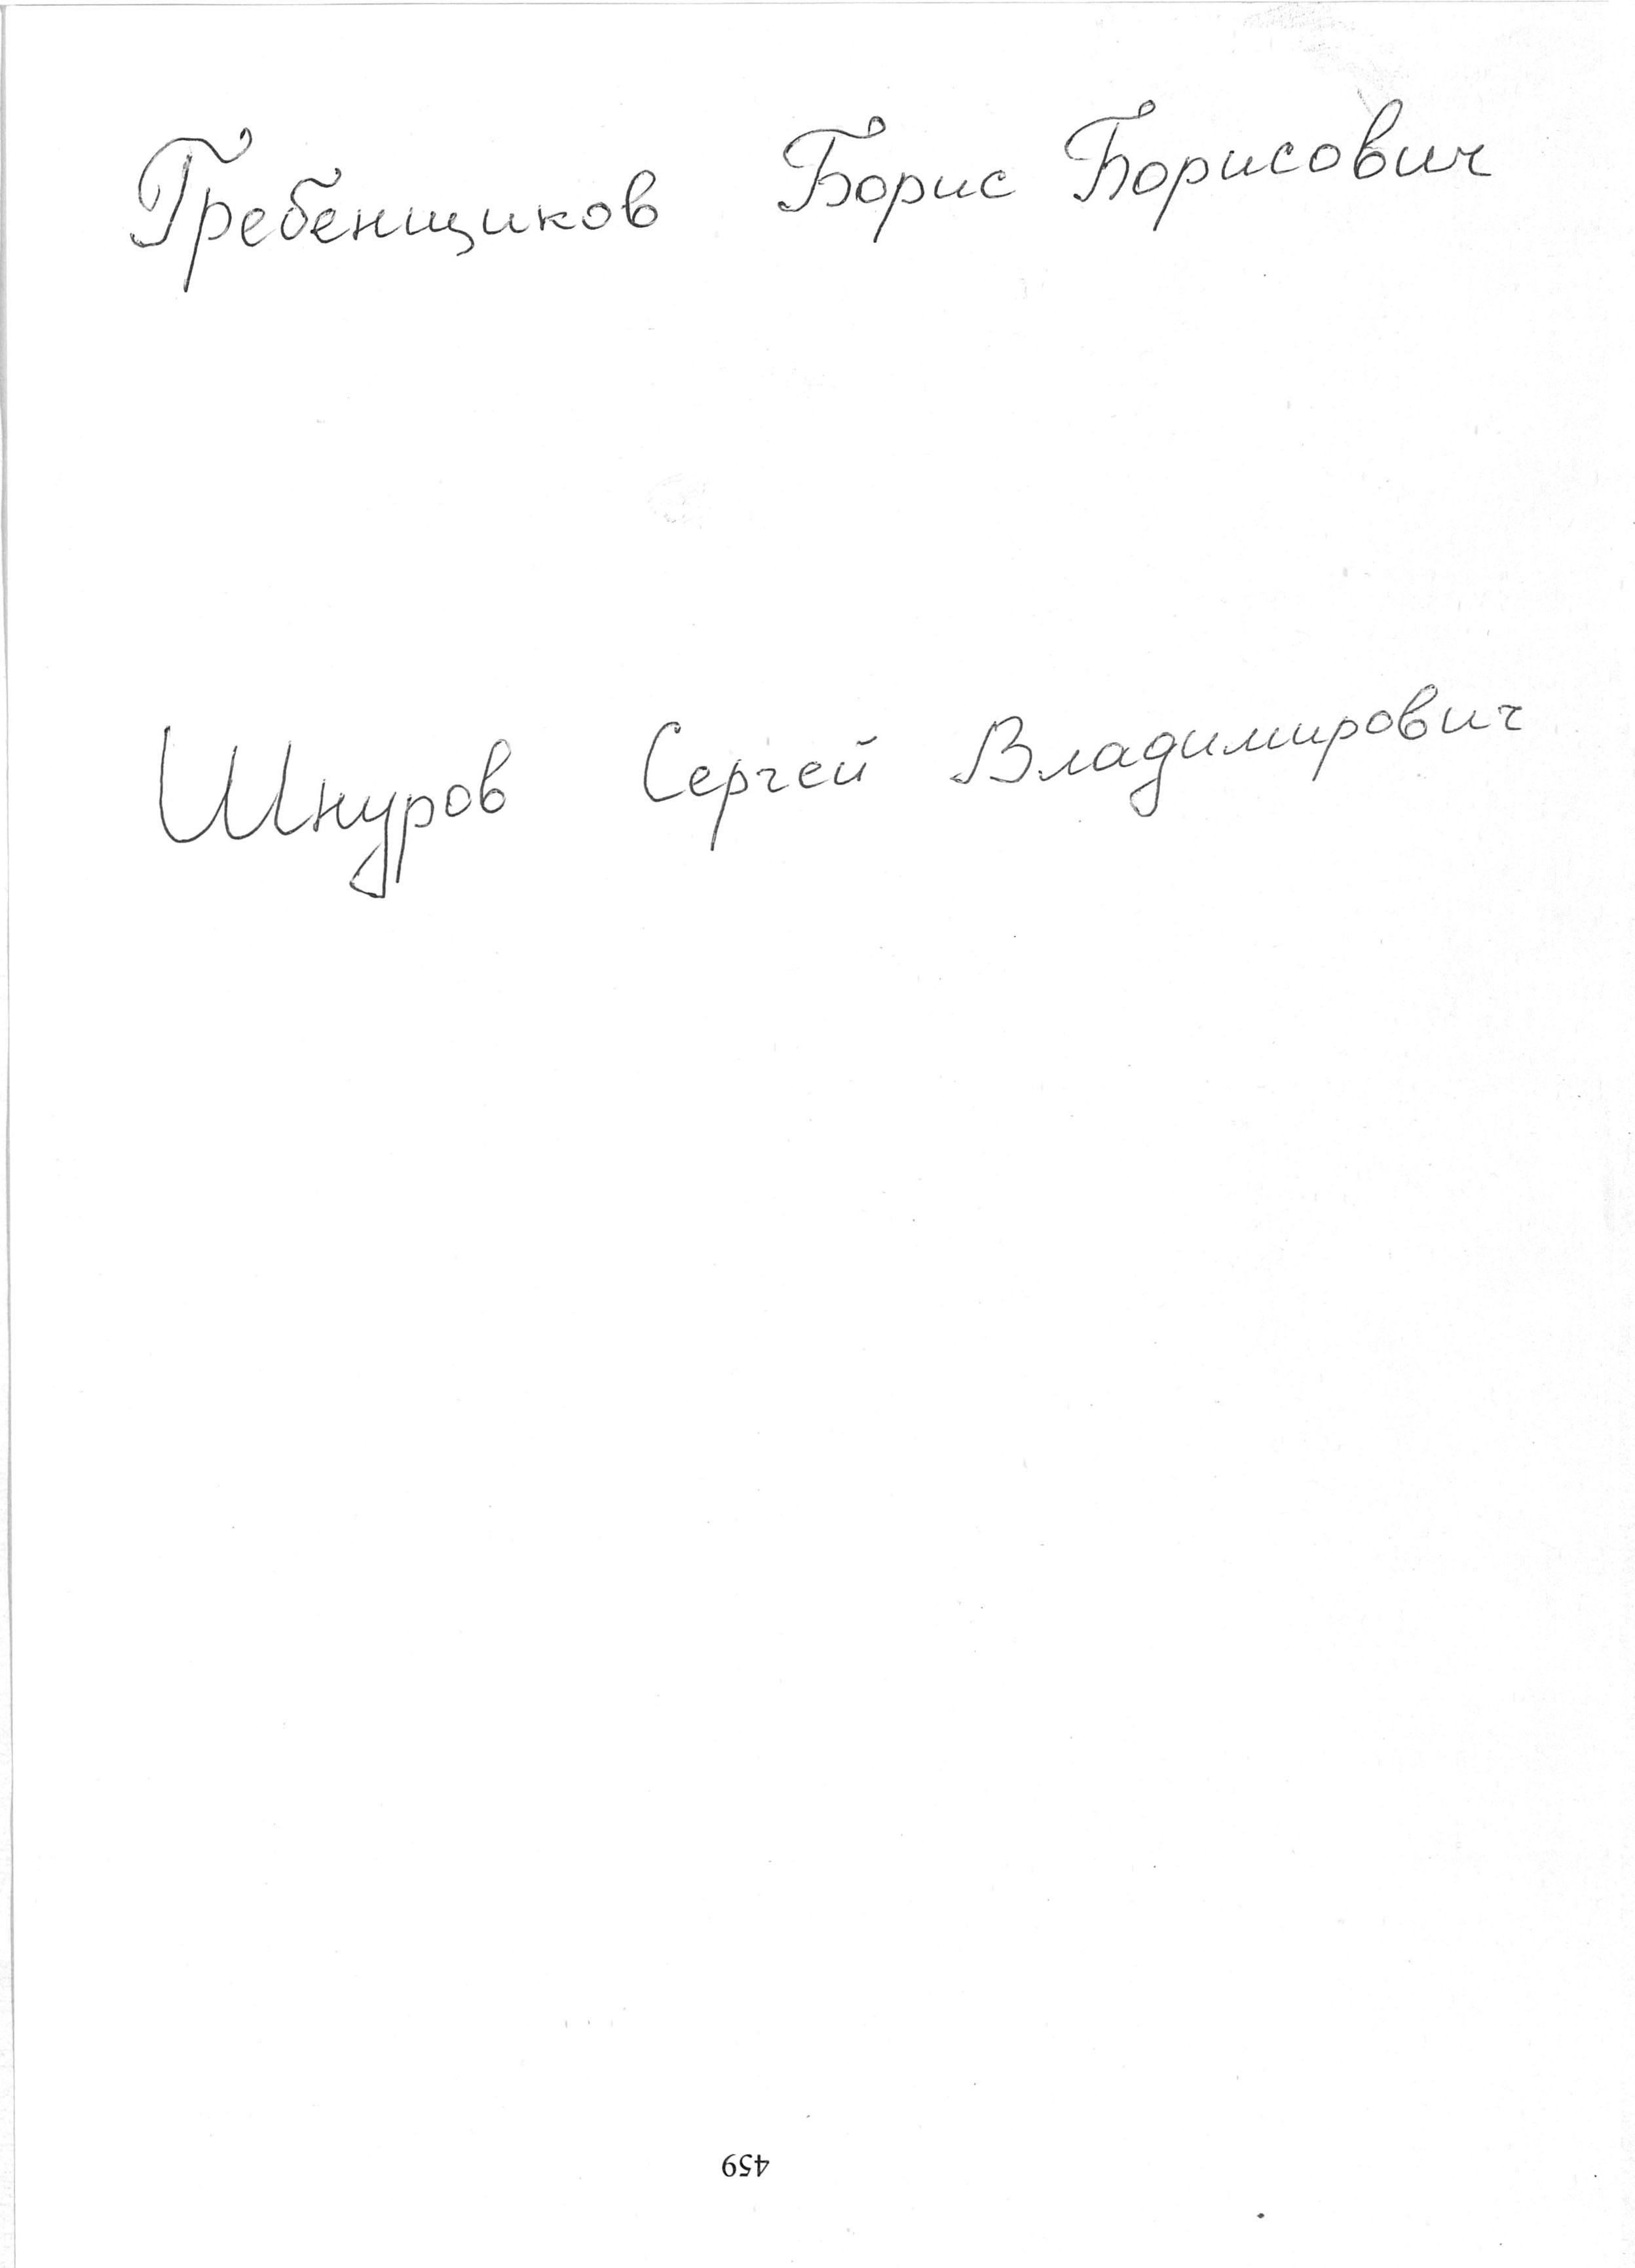 Гребенщиков Борис Борисович
Шнуров Сергей Владимирович
459